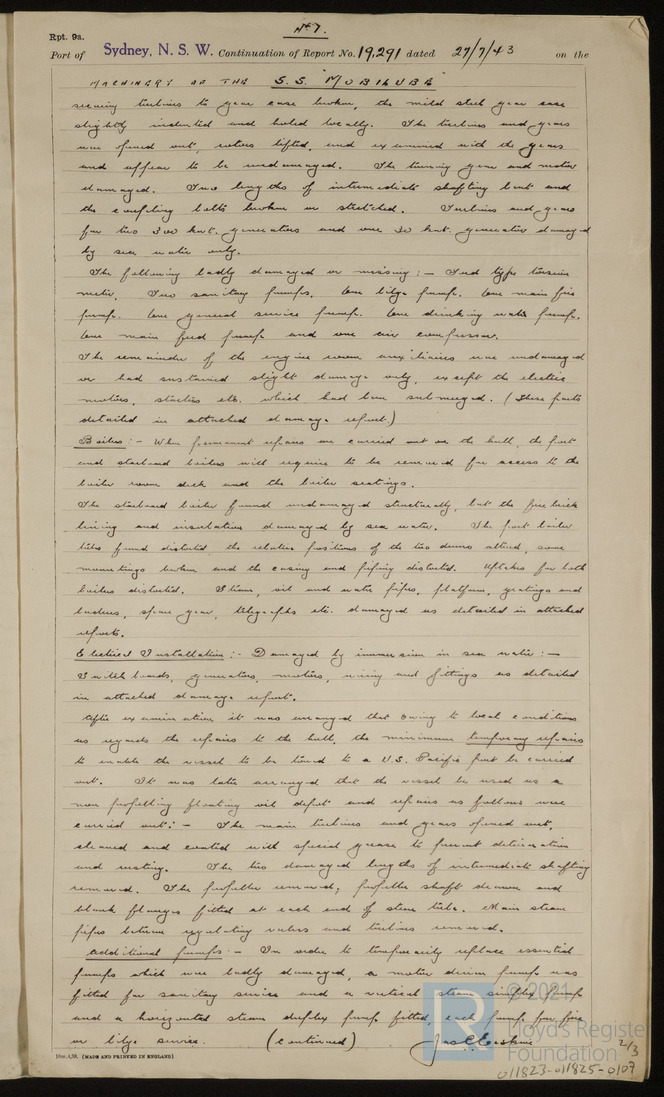 No 7.
Rpt. 9a.
Port of Sydney, N. S. W. Continuation of Report No. 19,291 dated 27/7/43 on the
MACHINERY OF THE S.S. "MOBILUBE"
securing turbines to gear case broken, the mild steel gear case
slightly indented and holed locally. The turbines and gears
were opened out, rotors lifted, and examined with the gears
and appear to be undamaged. The turning gear and motor
damaged. Two lengths of intermediate shafting bent and
the coupling bolts broken or stretched. Turbines and gears
for two 300 kwt. generators and one 30 kwt. generator damaged
by sea water only.
The following badly damaged or missing :— Ford type torsion
meter, Two sanitary pumps. One bilge pump. One main fire
pump. One general service pump. One drinking water pump.
One main feed pump and one air compressor.
The remainder of the engine room auxiliaries was undamaged
or had sustained slight damage only, except the electric
motors, starters etc. which had been submerged. (These parts
detailed in attached damage report.)
Boilers :— When permanent repairs are carried out on the hull, the port
and starboard boilers will require to be removed for access to the
boiler room deck and the boiler seatings.
The starboard boiler found undamaged structurally, but the fire brick
lining and insulation damaged by sea water. The port boiler
tubes found distorted, the relative positions of the two drums altered, some
mountings broken and the casing and piping distorted. Uptakes for both
boilers distorted. Steam, oil and water pipes, platforms, gratings and
ladders, spare gear, telegraphs etc. damaged as detailed in attached
reports.
Electrical Installation :— Damaged by immersion in sea water :—
Switchboards, generators, motors, wiring and fittings as detailed
in attached damage report.
After examination it was arranged that owing to local conditions
as regards the repairs to the hull, the minimum temporary repairs
to enable the vessel to be towed to a U.S. Pacific port be carried
out. It was later arranged that the vessel be used as a
non propelling floating oil depot and repairs as follows were
carried out :— The main turbines and gears opened out,
cleaned and coated with special grease to prevent deterioration
and rusting. The two damaged lengths of intermediate shafting
removed. The propeller removed, propeller shaft drawn and
blank flanges fitted at each end of stern tube. Main steam
pipes between regulating valves and turbines removed.
Additional pumps :— In order to temporarily replace essential
pumps which were badly damaged, a motor driven pump was
fitted for sanitary service and a vertical steam simplex pump
and a horizontal steam duplex pump fitted, each pump for fire
or bilge service. (continued)
© 2021
LR Lloyd's Register
Foundation
2/3
(MADE AND PRINTED IN ENGLAND)
011823-011825-0107